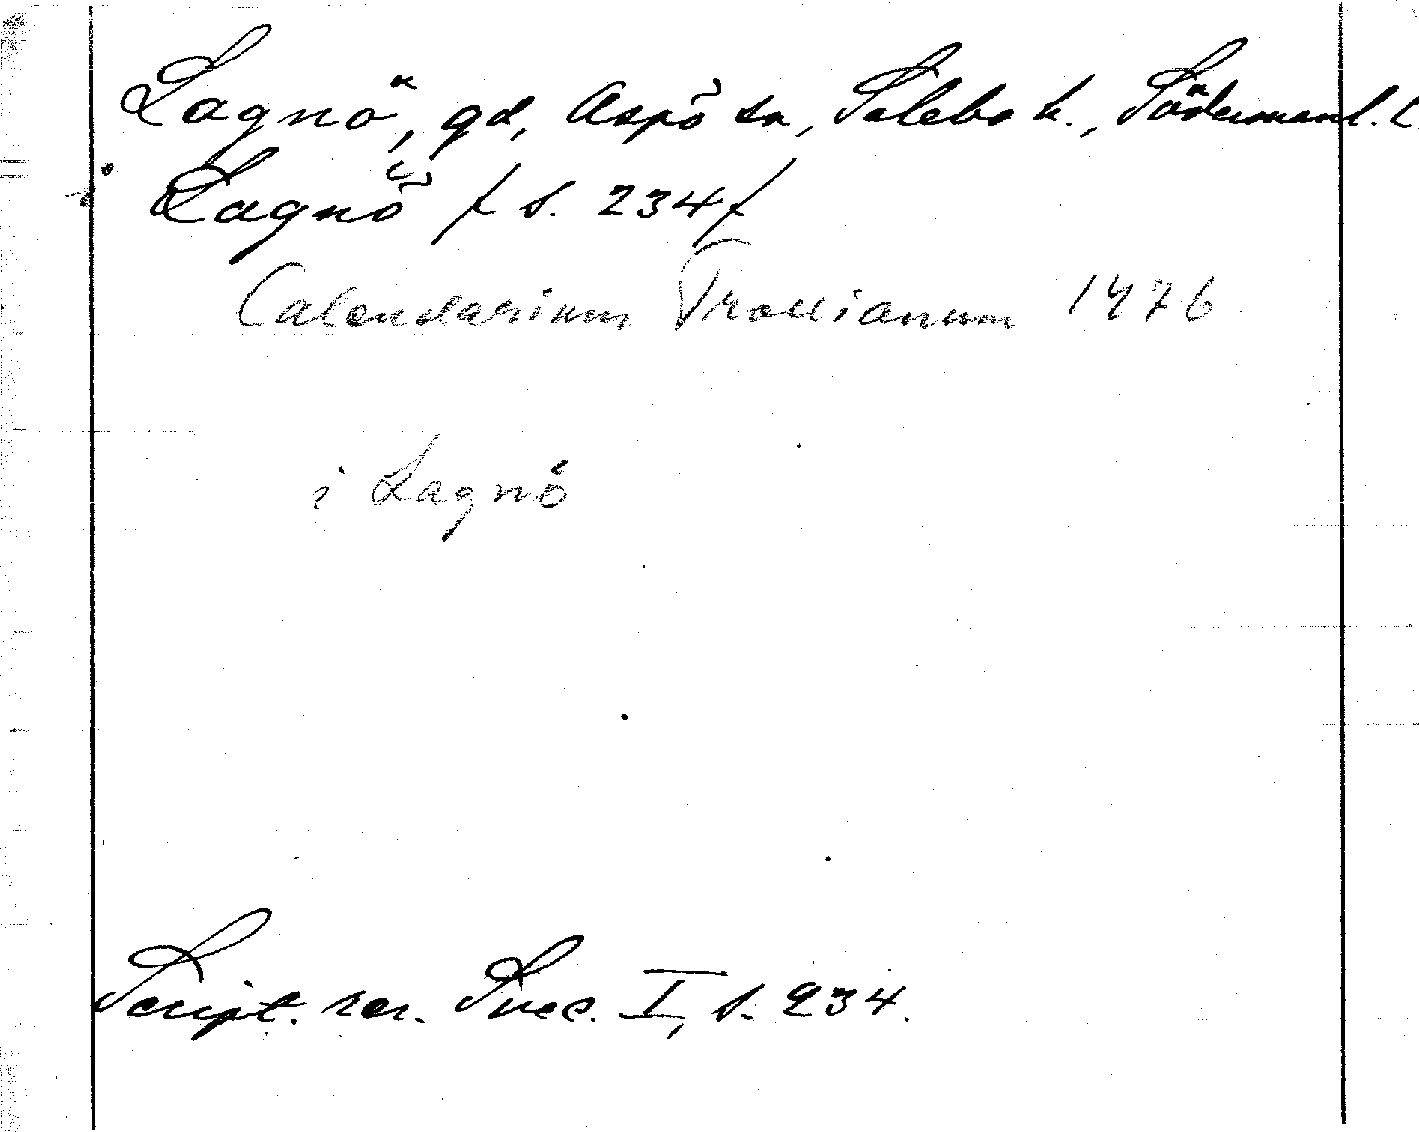 Lagnö, gd, Aspö sn, Selebo h., Södermanl. l.
i Lagnö / s. 234 /
Calendarium Trollianum 1476
i Lagnö
Script. rer. Svec. I, s. 234.